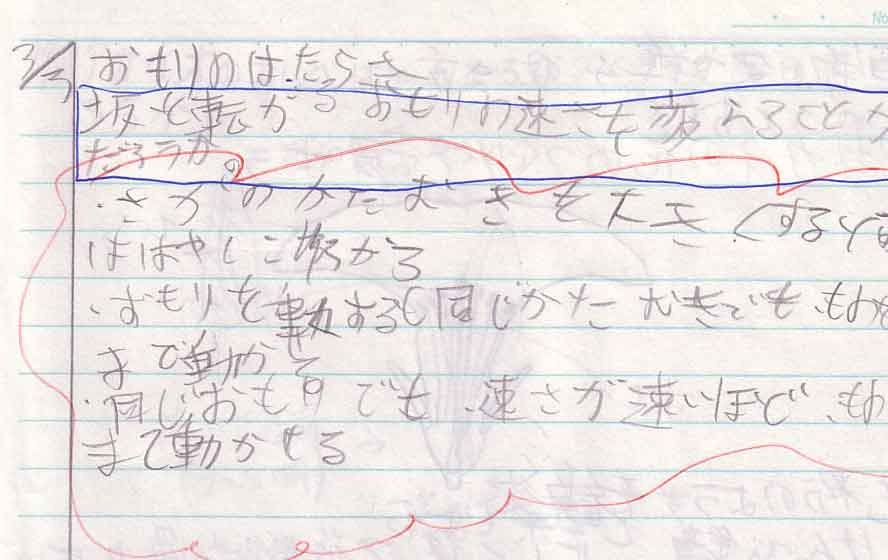 No
3/3 おもりのはたらき
坂を転がるおもりの速さを変えることが
だろうか。
・さかのかたむきを大きくすると
ははやしに転がる
・おもりを重するも同じかたむきでも、もの
まで動かせる
・同じおもりでも、速さが速いほど、もの
まで動かせる